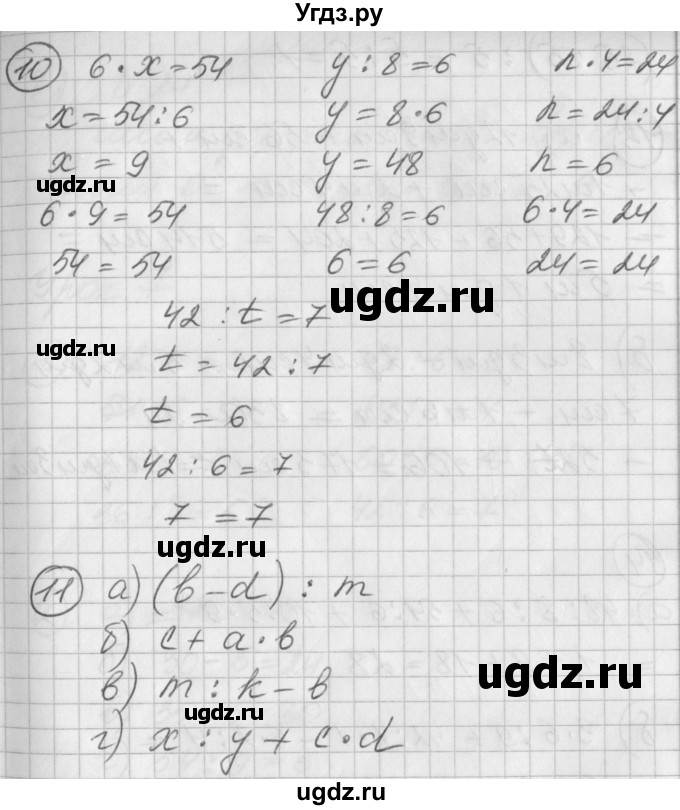 Угдз.ру
10 6·x=54   y:8=6   n·4=24
x=54:6   y=8·6   n=24:4
x=9   y=48   n=6
ugdz.ru
6·9=54   48:8=6   6·4=24
54=54   6=6   24=24
ugdz.ru
42:t=7
ugdz.ru
t=42:7
t=6
42:6=7
7=7
ugdz.ru
11 а) (b-d):m
б) c+a·b
ugdz.ru
в) m:k-b
ugdz.ru
г) x:y+c·d